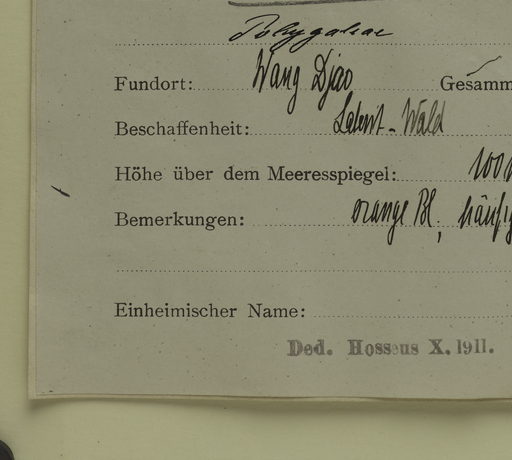 Polygalaceae
Fundort: Wang Djao Gesamm
Beschaffenheit: Laterit-Wald
Höhe über dem Meeresspiegel: 100
Bemerkungen: orange Bl, häufig
Einheimischer Name:
Ded. Hosseus X. 1911.